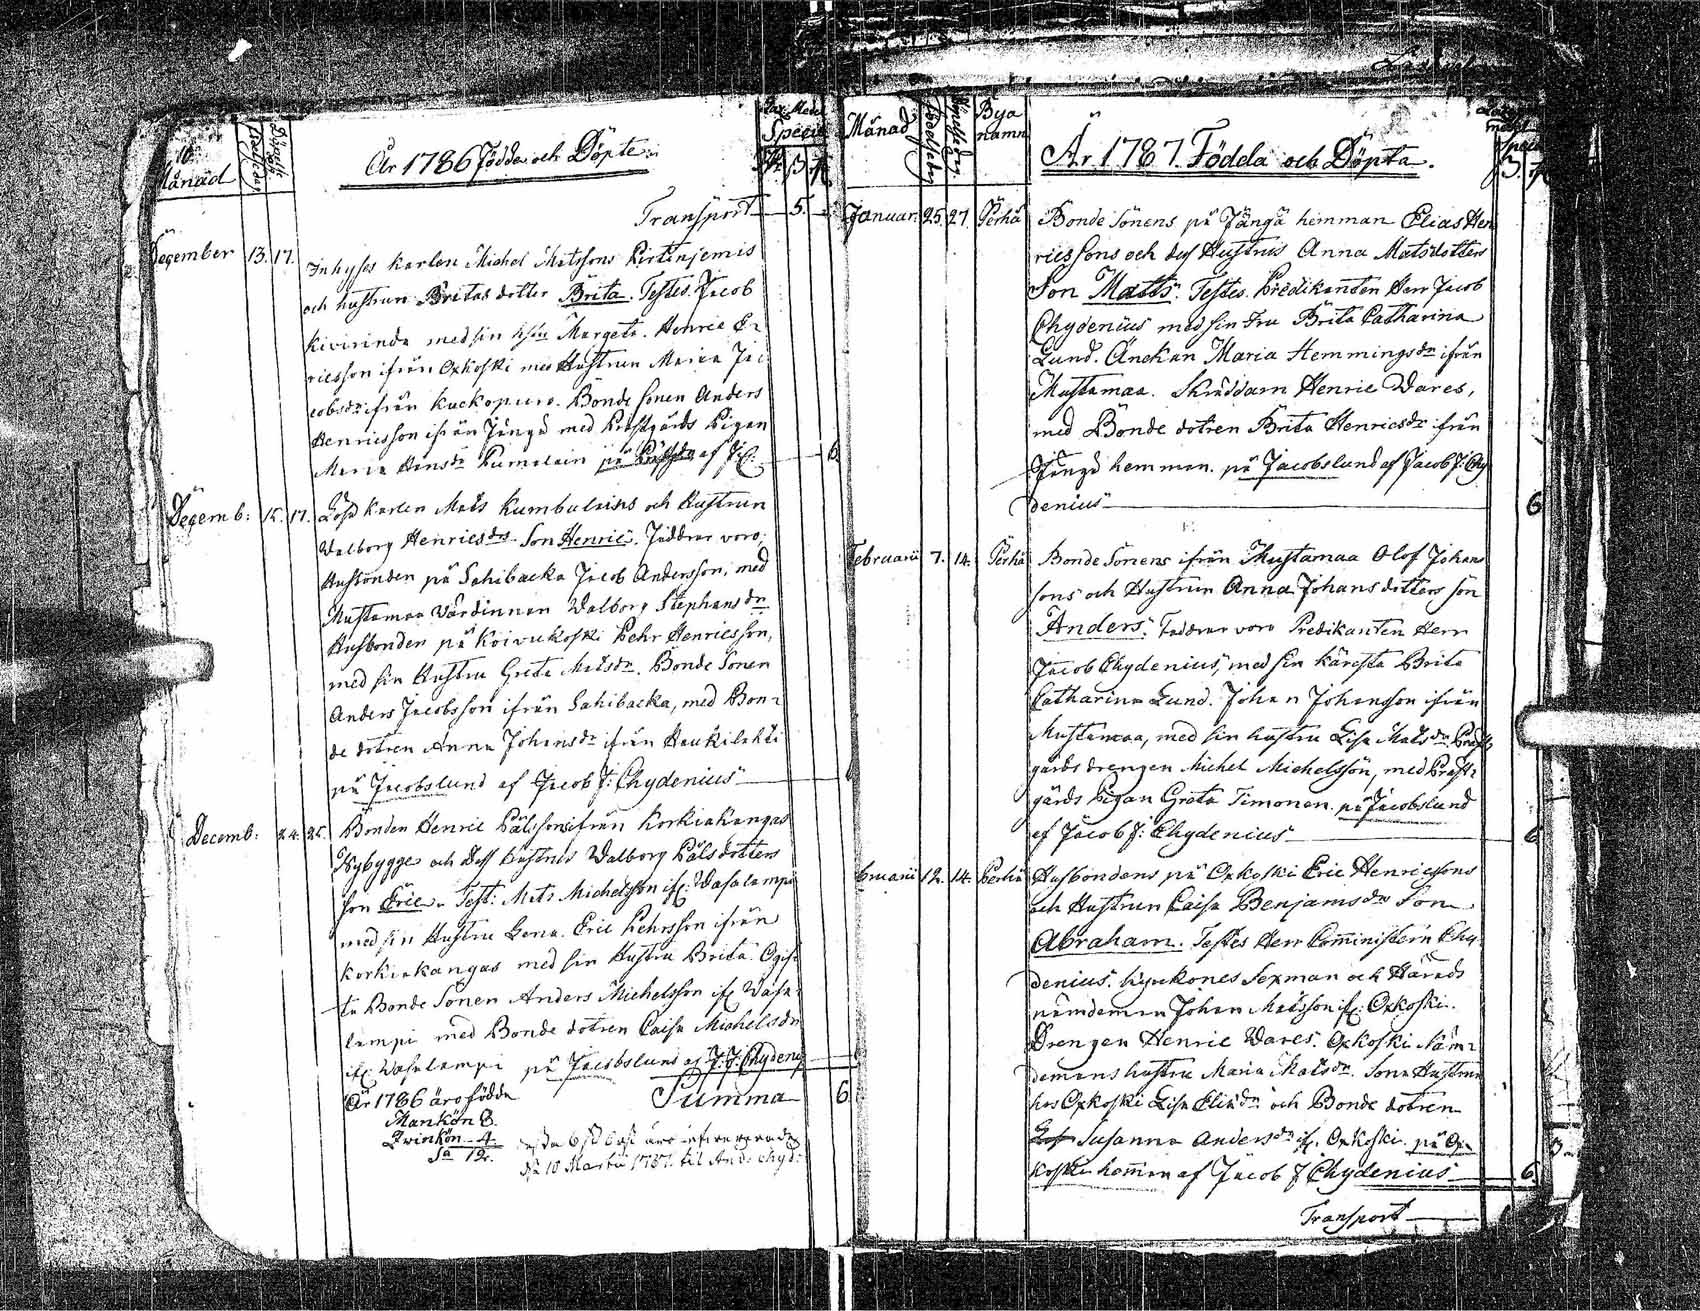 Månad
År 1786 Födda och Döpte
Speci
Transport 5.
December 13. 17. Inhyses karlen Michel Matssons
och hustrun Britas dotter Brita. Testes. Jacob
Kivirinda med sin Margeta. Henric E-
ricsson ifrån Oxkoski med Hustrun Maria Ja-
cobsdr ifrån Kuckopuro. Bonde Sonen Anders
Henricsson ifrån Jängä med Prästgårds Pigan
Maria Hansdr Humalain på af 6
Decemb: 15. 17. Lösa karlen Mats Humalains och Hustrun
Walborg Henricsdrs Son Henric. Faddrar voro,
Husbonden på Sahibacka Jacob Andersson, med
Mustamaa Värdinnan Walborg Stephansdr
Husbonden på Koivukoski Pehr Henricsson,
med sin Hustru Greta Matsdr. Bonde Sonen
Anders Jacobsson ifrån Sahibacka, med Bon-
de dotren Anna Johansdr ifrån Haukilahti
på Jacobslund af Jacob J: Chydenius
Decemb: 24. 25. Bonden Henric Pålssons ifrån Korkiakangas
Nybygge och dess Hustrus Walborg Pålsdotters
son Eric. Test: Mats Michelsson if: Wasalampi
med sin Hustru Lena. Eric Pehrsson ifrån
Korkiakangas med sin Hustru Brita. Ogif-
ta Bonde Sonen Anders Michelsson if: Wasa-
lampi med Bonde dotren Caisa Michelsdr
if: Wasalampi på Jacobslund af J. J. Chydenius
År 1786 äro födde Summa 6
Mankön 8.
Qvinkön 4.
Sa 12.
d: 10 Martii 1787. til And: Chyd:
Månad Födelsedag Byanamn
År 1787. Födda och Döpta.
Januar. 25. 27. Perhå Bonde Sönens på Jängä hemman Elias Hen
ricssons och dess Hustrus Anna Matsdotters
Son Matts. Testes. Predikanten Herr Jacob
Chydenius med sin Fru Brita Catharina
Lund. Änckan Maria Hemmingsdr ifrån
Mustamaa. Skräddarn Henric Wares,
med Bonde dotren Brita Henricsdr från
Jängä hemman. på Jacobslund af Jacob J: Chy
denius 6
Februarii 7. 14. Perhå Bonde Sonens ifrån Mustamaa Olof Johans
sons och Hustrun Anna Johansdotters son
Anders. Faddrar voro Predikanten Herr
Jacob Chydenius, med sin käresta Brita
Catharina Lund. Johan Johansson ifrån
Mustamaa, med sin hustru Lisa Matsdr. Präst
gårds drengen Michel Michelsson, med Präst-
gårds pigan Greta Timonen. på Jacobslund
af Jacob J: Chydenius 6
bruarii 12. 14. Perhå Husbondens på Oxkoski Eric Henricssons
och Hustrun Caisa Benjamsdrs Son
Abraham. Testes Herr Comministern Chy
denius. Sexman och Härads
nämdeman Johan Matsson if: Oxkoski.
Drengen Henric Wares. Oxkoski Näm-
demans hustru Maria Matsdr. Sone Hustrun
hos Oxkoski Lisa Eliædr och Bonde dotren
Susanna Andersdr if. Oxkoski. på Ox-
koski hemman af Jacob J Chydenius 6.
Transport